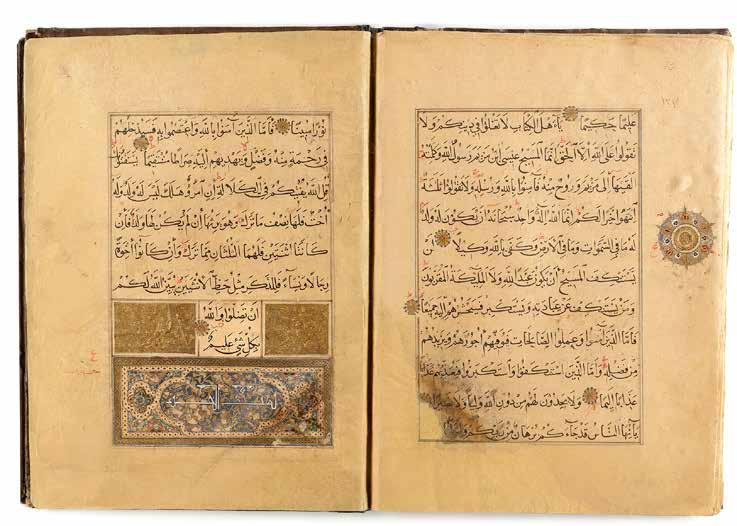 عليما حكيما يا اهل الكتاب لا تغلوا في دينكم ولا
تقولوا على الله الا الحق انما المسيح عيسى ابن مريم رسول الله وكلمته
القيها الى مريم وروح منه فآمنوا بالله ورسله ولا تقولوا ثلثة
انتهوا خيرا لكم انما الله اله واحد سبحانه ان يكون له ولد
له ما في السموات وما في الارض وكفى بالله وكيلا لن
يستنكف المسيح ان يكون عبدا لله ولا الملئكة المقربون
ومن يستنكف عن عبادته ويستكبر فسيحشرهم اليه جميعا
فاما الذين آمنوا وعملوا الصالحات فيوفيهم اجورهم ويزيدهم
من فضله واما الذين استنكفوا واستكبروا فيعذبهم
عذابا اليما ولا يجدون لهم من دون الله وليا ولا نصيرا
يا ايها الناس قد جاءكم برهان من ربكم
نورا مبينا فاما الذين آمنوا بالله واعتصموا به فسيدخلهم
في رحمة منه وفضل ويهديهم اليه صراطا مستقيما يستفتونك
قل الله يفتيكم في الكلالة ان امرؤ هلك ليس له ولد وله
اخت فلها نصف ما ترك وهو يرثها ان لم يكن لها ولد فان
كانتا اثنتين فلهما الثلثان مما ترك وان كانوا اخوة
رجالا ونساء فللذكر مثل حظ الانثيين يبين الله لكم
ان تضلوا والله
بكل شئ عليم